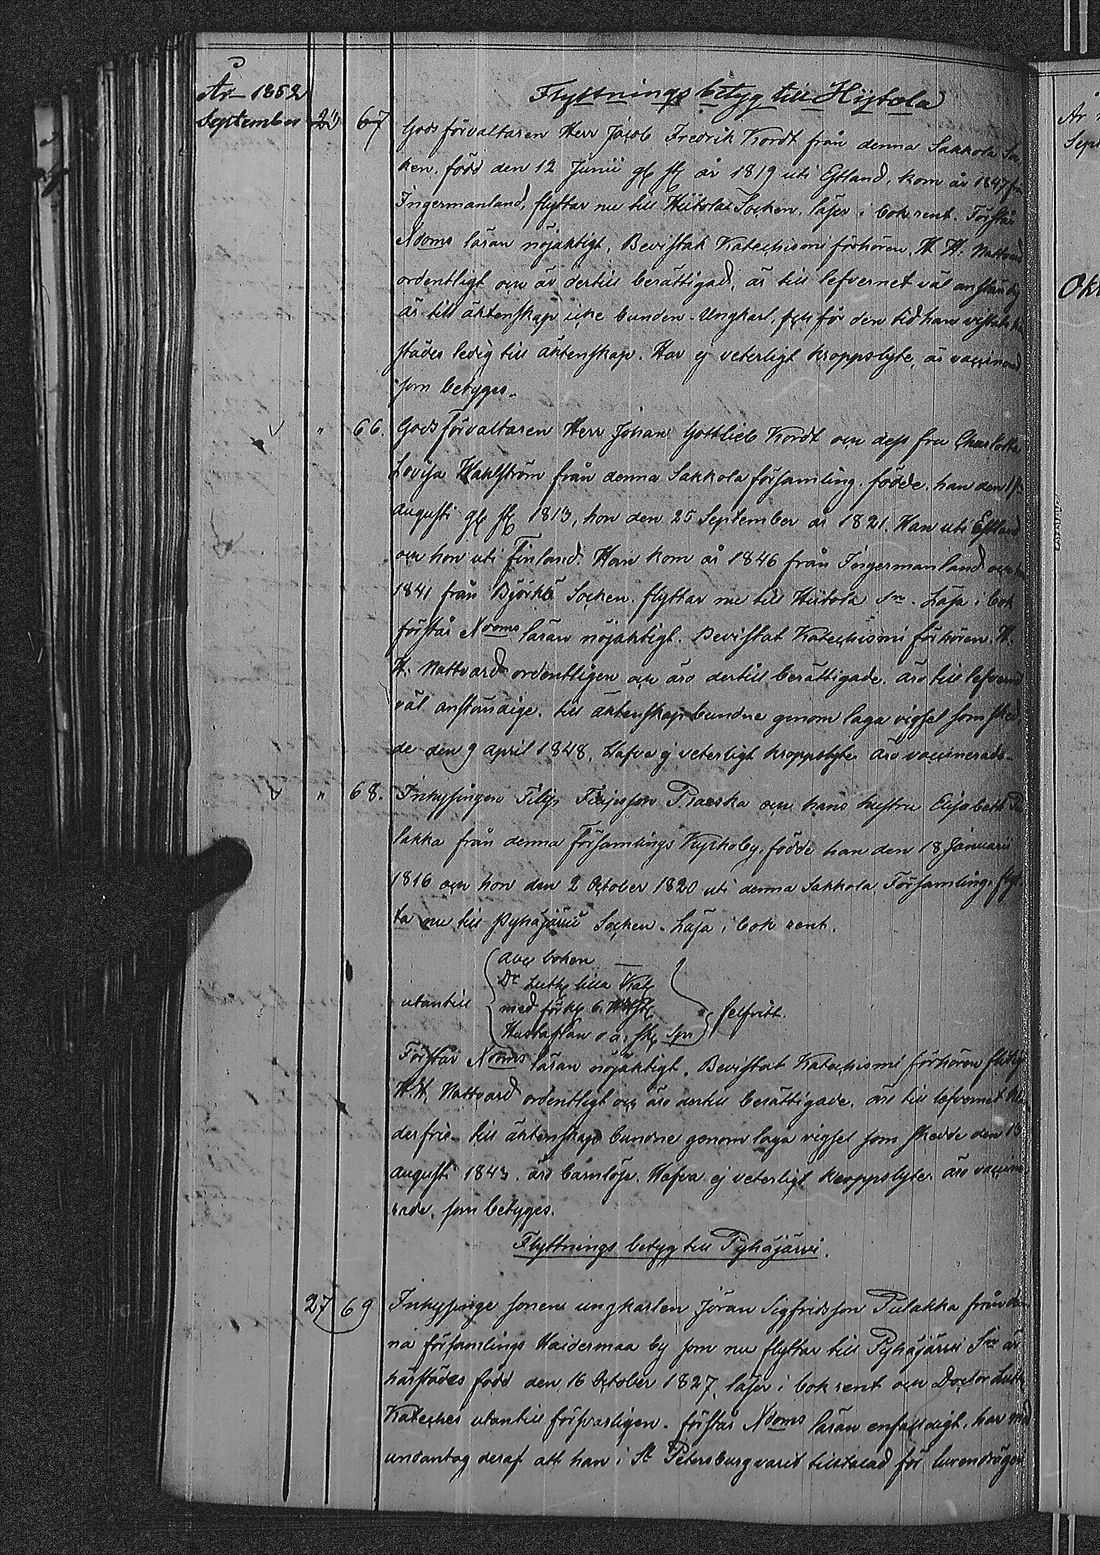 År 1852 Flyttnings betyg till Hiitola
September 23 67 Gods förvaltaren Herr Jacob Fredrik Kordt från denna Sakkola So-
ken, född den 12 Junii gl st år 1819 uti Estland, kom år 1847 fr
Ingermanland, flyttar nu till Hiitola Socken, läser i bok rent. Förstår
Ndoms läran nöjaktigt. Bevistat Katechismi förhören, H. H. Nattvard
ordentligt och är dertill berättigad, är till lefvernet väl anständig
är till äktenskap icke bunden. Ungkarl, och för den tid han vistats här-
städes ledig till äktenskap. Har ej veterligt kroppslyte, är vaccinerad
som betyges.
" 66. Gods förvaltaren Herr Johan Gottlieb Kordt och dess fru Charlotta
Lovisa Wahlström från denna Sakkola församling, födde, han den
Augusti gl st 1813, hon den 25 September år 1821. Han uti Estland
och hon uti Finland. Han kom år 1846 från Ingermanland och
1841 från Björkö Socken, flyttar nu till Hiitola Sn. Läsa i bok
förstår Ndoms läran nöjaktigt. Bevistat Katechismi förhören. H.
H. Nattvard ordentligen och äro dertill berättigade. äro till lefvern
väl anständige. till äktenskap bundne genom laga vigsel som sked-
de den 9 April 1848. Hafva ej veterligt kroppslyte äro vaccinerade.
" 68. Inhysingen Filip Filipsson Paeska och hans hustru Elisabeth Pu
lakka från denna Församlings by, födde han den 18 Januarii
1816 och hon den 2 October 1820 uti denna Sakkola Församling, flyt
ta nu till Pyhäjärvi Socken. Läsa i bok rent.
abc boken
Dr Luth lilla Kat
utantill med förkl o. felfritt.
Hustaflan o. a. sk. spr
Förstår Ndoms läran nöjaktigt. Bevistat Katechismi förhören flitigt
H. H. Nattvard ordentligt och äro dertill berättigade. äro till lefvernet kla
derfrie. till äktenskap bundne genom laga vigsel som skedde den 15
Augusti 1843. äro barnlöse. Hafva ej veterligt kroppslyte. äro vaccine-
rade, som betyges.
Flyttnings betyg till Pyhäjärvi.
27 69 Inhysinge sonen ungkarlen Jöran Sigfridsson Pulakka från den-
na församlings Haidermaa by som nu flyttar till Pyhäjärvi Sn är
härstädes född den 16 October 1827, läser i bok rent och Doctor Luth
Kateches utantill försvarligen. förstår Ndoms läran enfaldigt, har med
undantag deraf att han i St Petersburg varit tilltalad för lurendrägeri
År 1
Sept
Okt